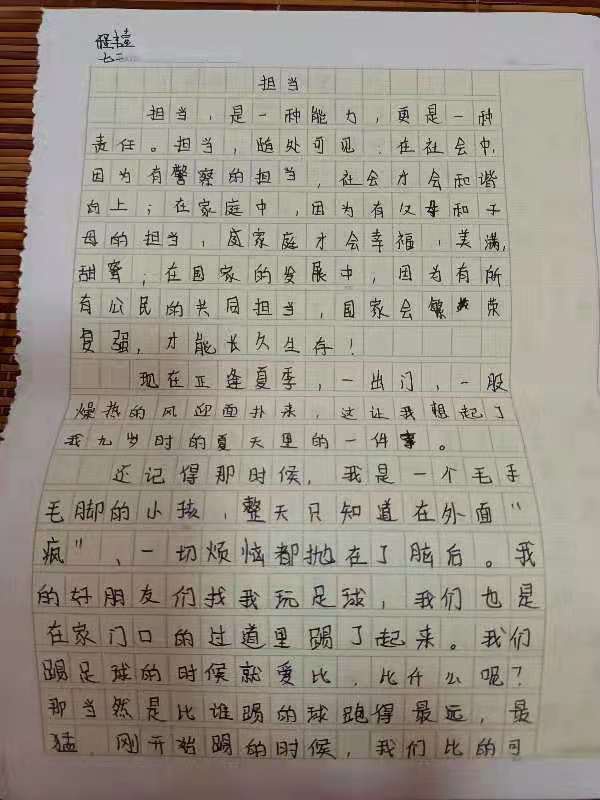 七二
担当
担当，是一种能力，更是一种
责任。担当，随处可见：在社会中，
因为有警察的担当，社会才会和谐
向上；在家庭中，因为有父母和子
母的担当，家庭才会幸福、美满，
甜蜜；在国家的发展中，因为有所
有公民的共同担当，国家会繁荣
复强，才能长久生存！
现在正逢夏季，一出门，一股
燥热的风迎面扑来，这让我想起了
我九岁时的夏天里的一件事。
还记得那时候，我是一个毛手
毛脚的小孩，整天只知道在外面“
疯”，一切烦恼都抛在了脑后。我
的好朋友们找我玩足球，我们也是
在家门口的过道里踢了起来。我们
踢足球的时候就爱比，比什么呢？
那当然是比谁踢的球跑得最远，最
猛．刚开始踢的时候，我们比的可